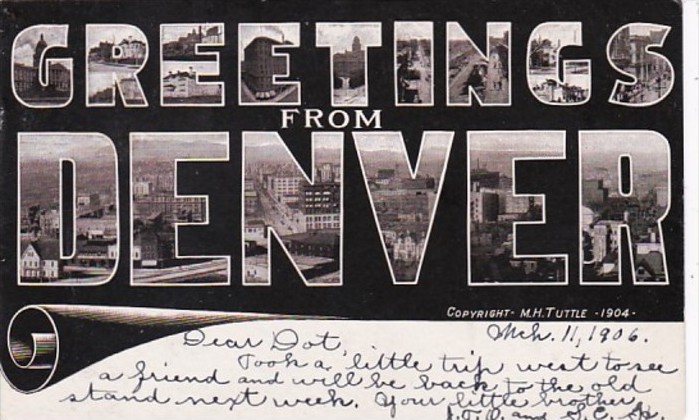 GREETINGS
FROM
DENVER
COPYRIGHT- M.H. TUTTLE -1904-
Mch. 11, 1906.
Dear Dot,
Took a little trip west to see
a friend and will be back to the old
stand next week. Your little brother,